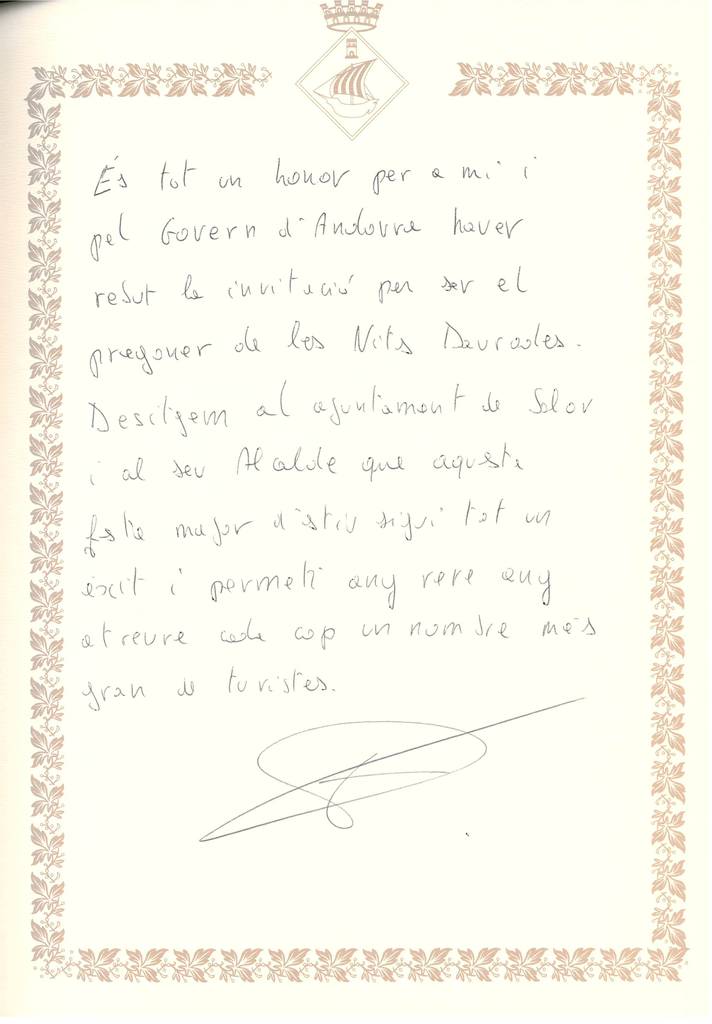 És tot un honor per a mi i
pel Govern d'Andorra haver
rebut la invitació per ser el
pregoner de les Nits Daurades.
Desitgem al ajuntament de Salou
i al seu Alcalde que aquesta
festa major d'estiu sigui tot un
èxit i permeti any rere any
atreure cada cop un nombre més
gran de turistes.